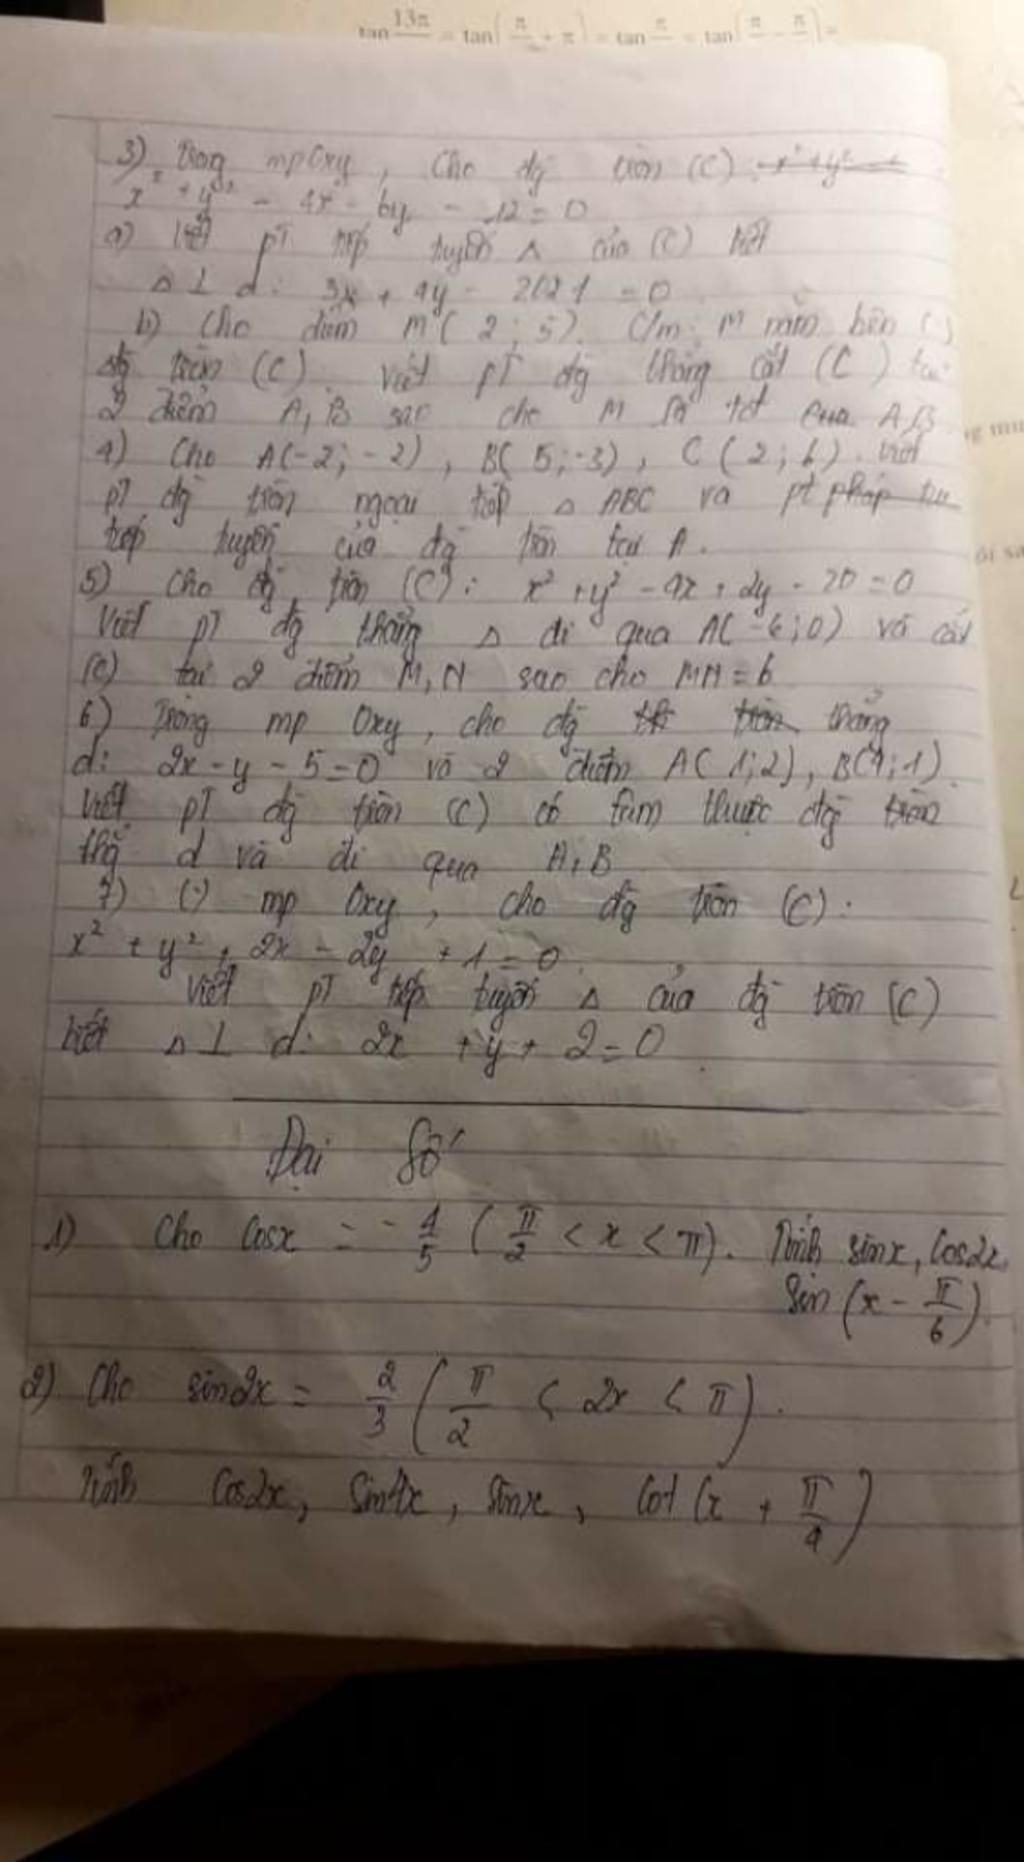 tan 13π = tan( π + π ) = tan π = tan( π - π ) =
3) Trong mp Oxy, Cho đg tròn (C):
x² + y² - 4x - 6y - 12 = 0
a) Viết pT tiếp tuyến Δ của (C) biết
Δ ⊥ d: 3x + 4y - 2021 = 0
b) Cho điểm M( 2 ; 5 ). C/m: M nằm bên (.)
đg tròn (C). Viết pT đg thẳng cắt (C) tại
2 điểm A, B sao cho M là tđ của AB
4) Cho A(-2; -2), B( 5; -3), C( 2; 6). viết
pT đg tròn ngoại tiếp Δ ABC và pt
tiếp tuyến của đg tròn tại A.
5) Cho đg tròn (C): x² + y² - 4x + 2y - 20 = 0
Viết pT đg thẳng Δ đi qua A( -6; 0) và cắt
(C) tại 2 điểm M, N sao cho MN = 6
6) Trong mp Oxy, cho đg thẳng
d: 2x - y - 5 = 0 và 2 điểm A( 1; 2), B(4; 1).
Viết pT đg tròn (C) có tâm thuộc đg
thg d và đi qua A, B
7) (.) mp Oxy, cho đg tròn (C):
x² + y² + 2x - 2y + 1 = 0.
Viết pT tiếp tuyến Δ của đg tròn (C)
biết Δ ⊥ d: 2x + y + 2 = 0.
Đại Số
1) Cho Cosx = - 4/5 ( π/2 < x < π). Tính sinx, Cos2x,
Sin (x - π/6).
2) Cho sin2x = 2/3 ( π/2 < 2x < π ).
Tính Cos2x, Sin4x, Sinx, Cot (x + π/4)